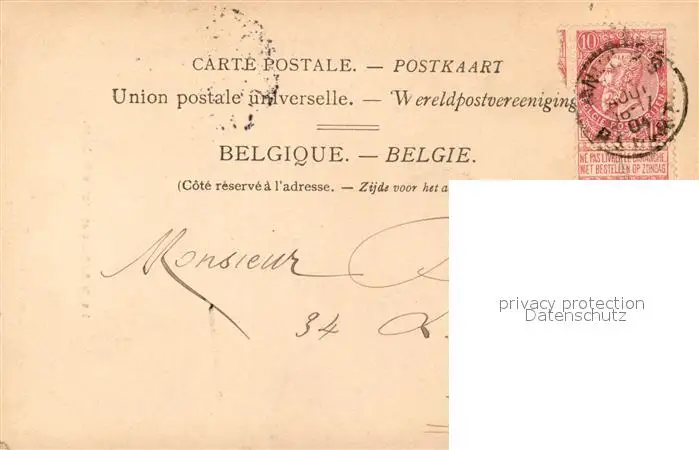 CARTE POSTALE. — POSTKAART
Union postale universelle. — Wereldpostvereeniging
BELGIQUE. — BELGIE.
(Côté réservé à l'adresse. — Zijde voor het a
10
NE PAS LIVRER LE DIMANCHE
NIET BESTELLEN OP ZONDAG
Monsieur
34
privacy protection
Datenschutz